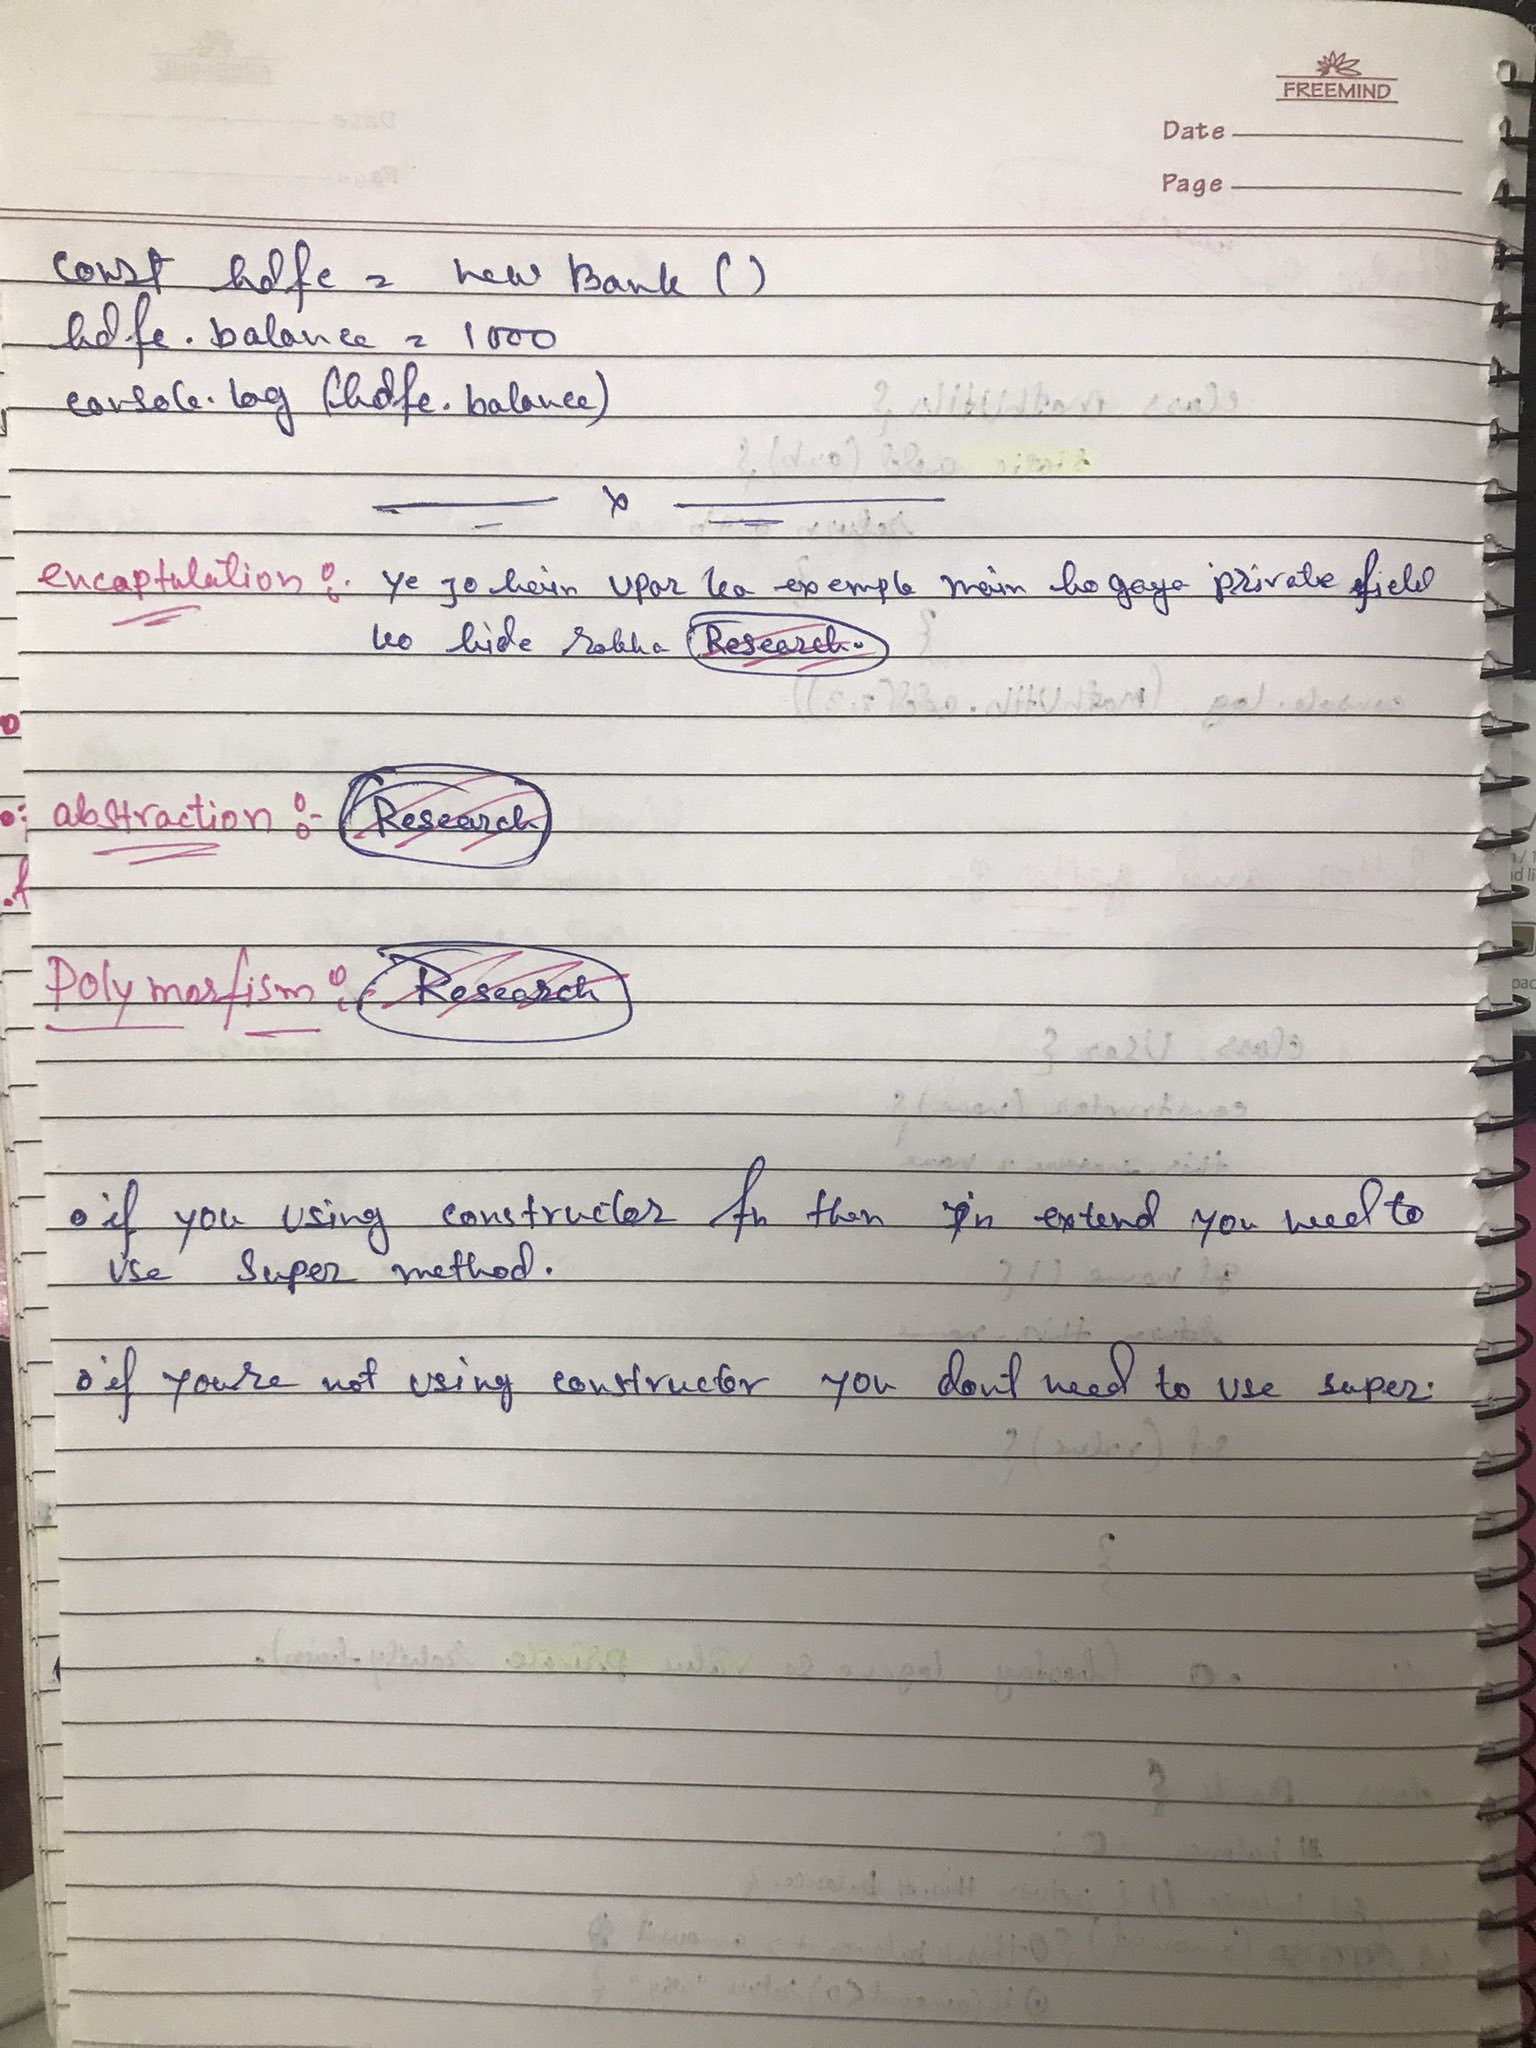 FREEMIND
Date
Page
const hdfc = new Bank ()
hdfc.balance = 1000
console.log (hdfc.balance)
x
encaptulation :- ye jo hain upar ka exemple main ho gaya private field
ko hide rakha Research.
abstraction :- Research
Polymorfism :- Research
• if you using constructor fn then in extend you need to
use super method.
• if you're not using constructor you don't need to use super.